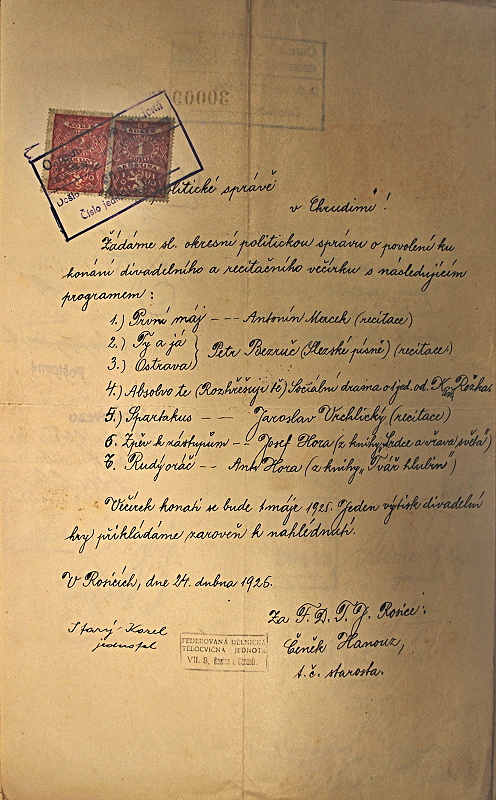 30000
KOLEK
KOLEK
Číslo jedn
politické správě
v Chrudimi!
Žádáme sl. okresní politickou správu o povolení ku
konání divadelního a recitačního večírku s následujícím
programem:
1.) První máj --- Antonín Macek (recitace)
2.) Ty a já
3.) Ostrava } Petr Bezruč (Slezské písně) (recitace)
4.) Absolvo te (Rozhřešuji tě) Sociální drama o 1 jed. od. Rožka.
5.) Spartakus -- Jaroslav Vrchlický (recitace)
6. Zpěv k zástupům -- Josef Hora (z knihy „Srdce a vřava světa")
7. Rudý oráč -- Ant. Hora (z knihy „Tvář hlubin")
Večírek konati se bude 1 máje 1925. Jeden výtisk divadelní
hry přikládáme zaroveň k nahlédnutí.
V Rosicích, dne 24. dubna 1925.
Za F. D. T. J. Rosice:
Starý Karel
jednatel
FEDEROVANÁ DĚLNICKÁ
TĚLOCVIČNÁ JEDNOTA
VII. 8. Rosice u Chrasti.
Čeněk Hanouz,
t. č. starosta.